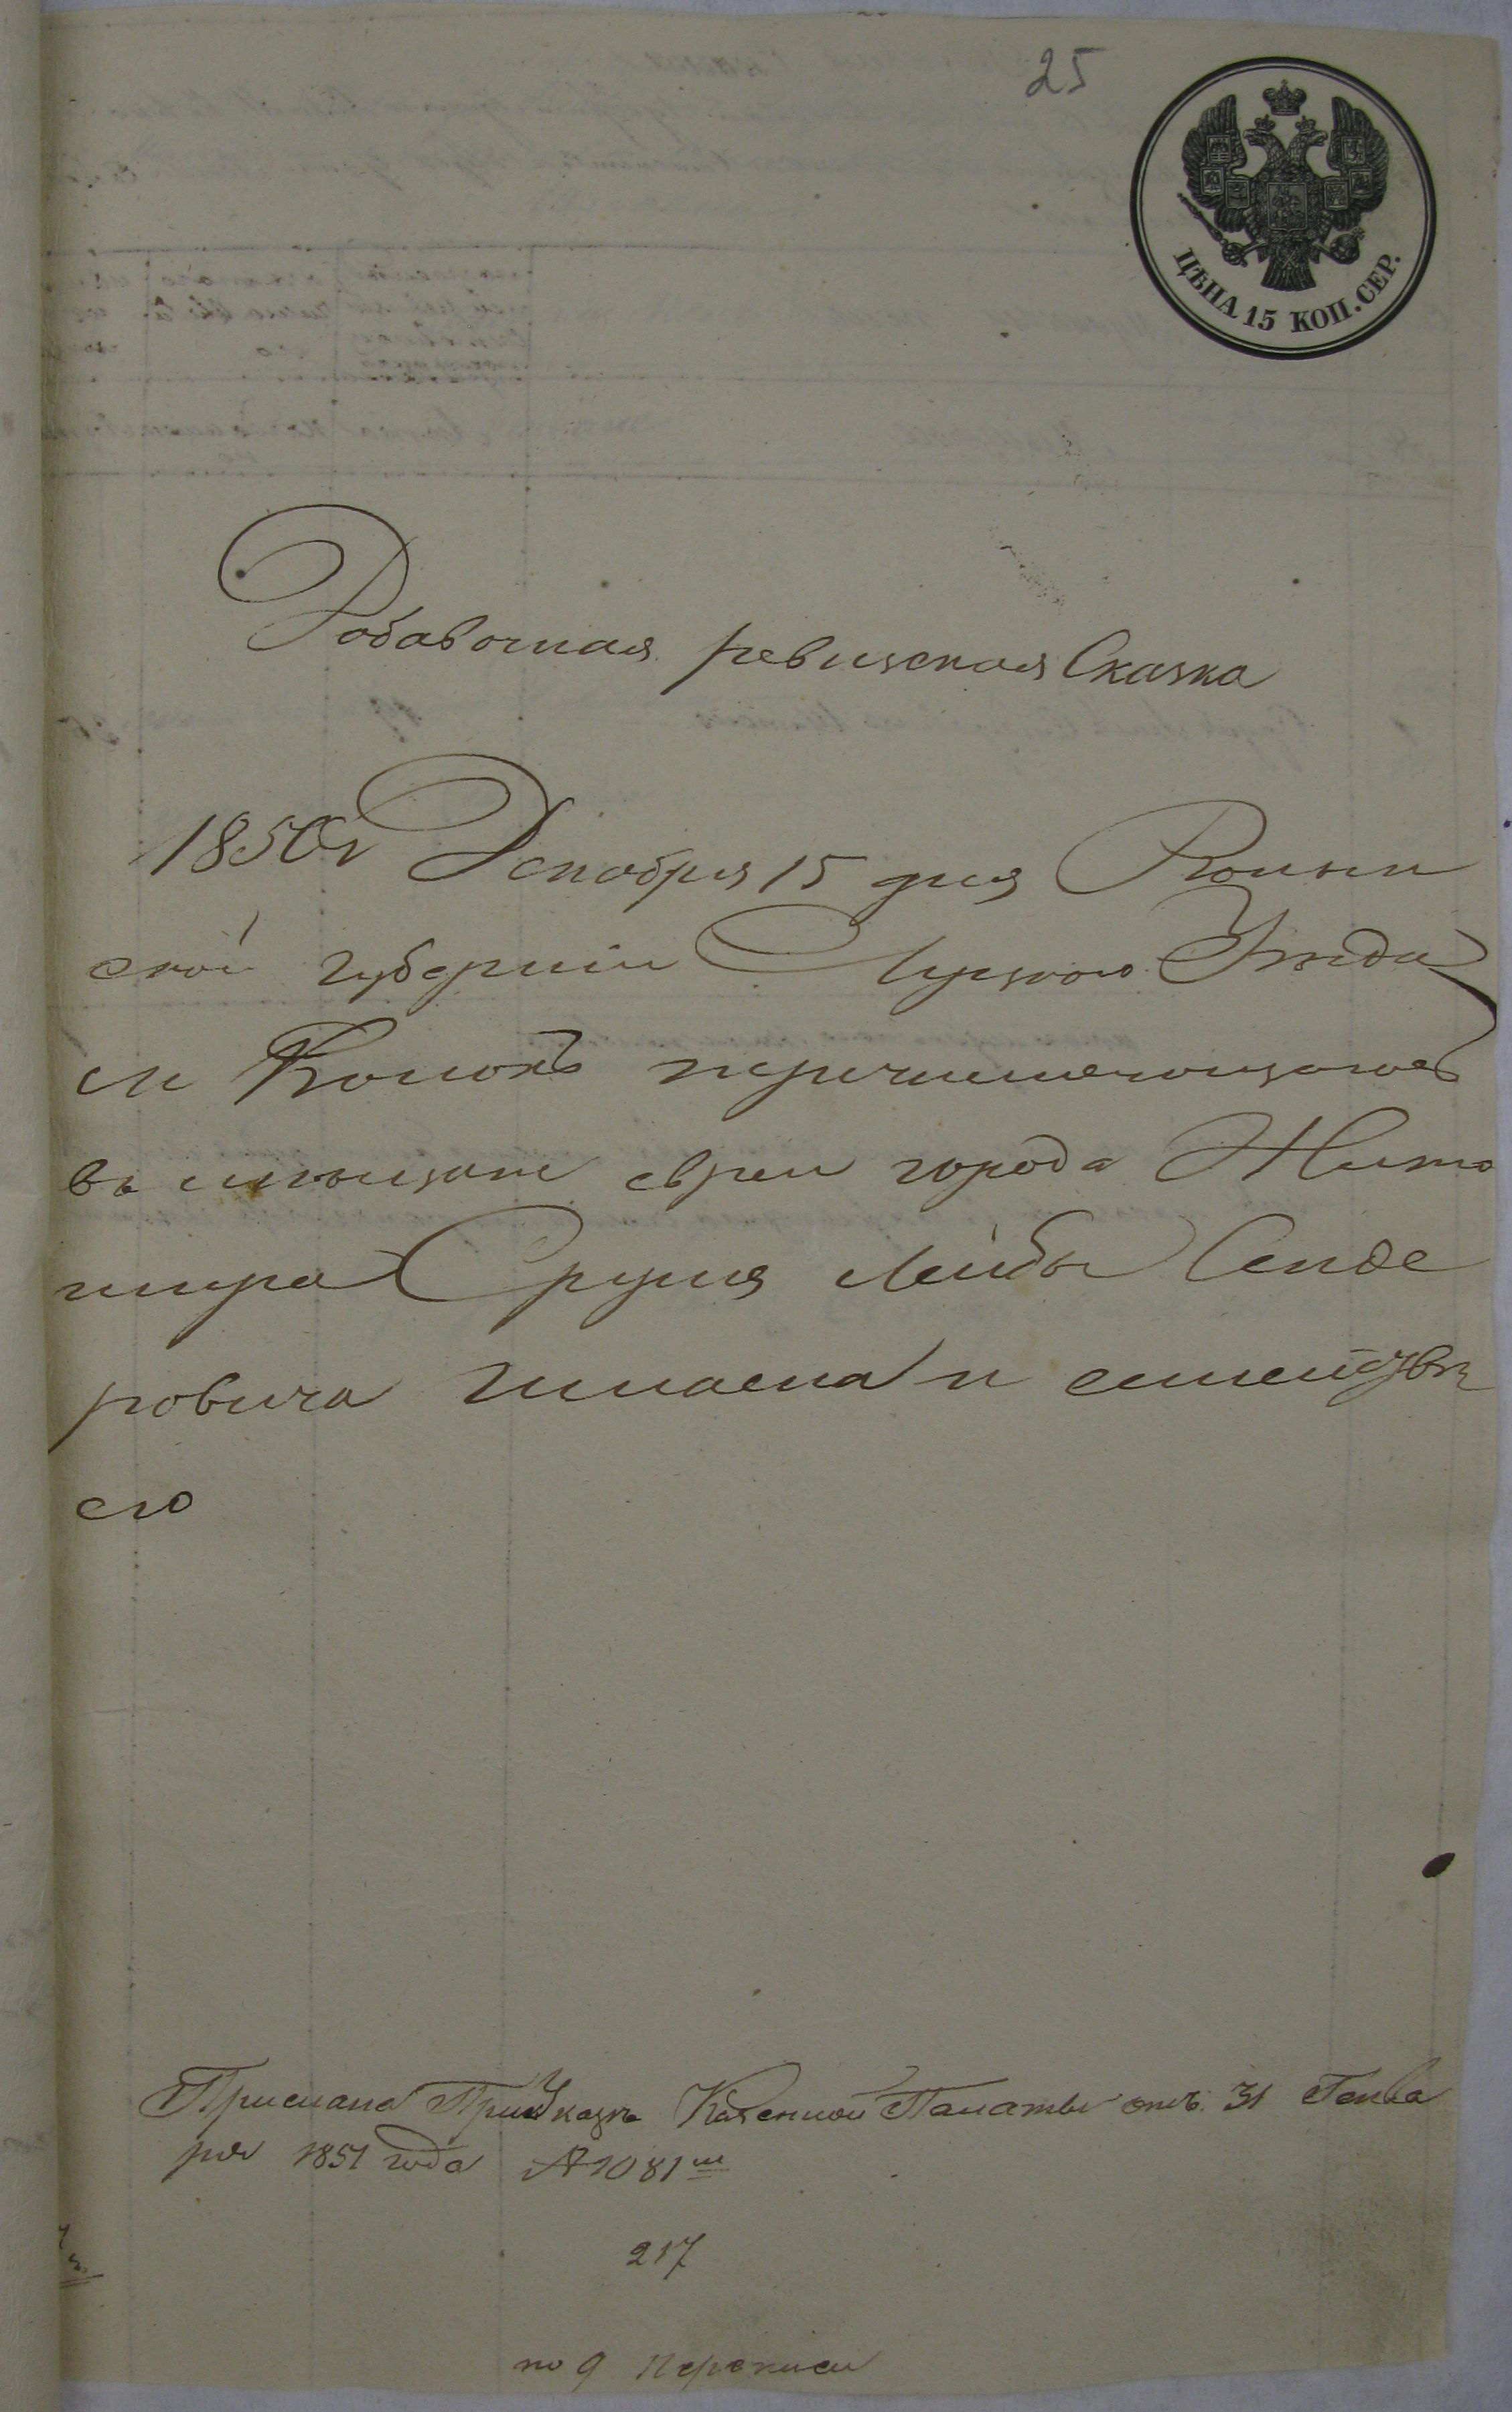 25
ЦѢНА 15 КОП. СЕР.
Добавочная ревизская Сказка
1850г Декабря 15 дня Волын
ской губерніи Луцкого Уѣзда
м Колокъ перечисляющагося
въ мѣщане еврея города Жито
мира Сруля Лейбы Сенде
ровича и семейства
его
Прислана При Указѣ Казенной Палаты отъ 31 Генва
ря 1851 года № 1081
217
по 9 переписи